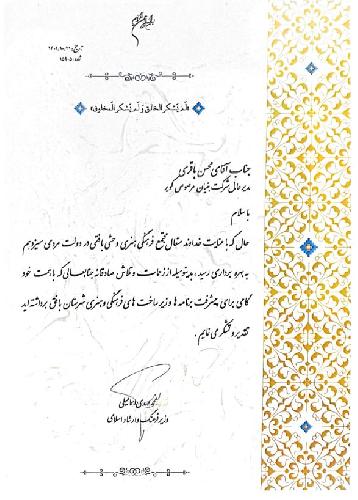 جناب آقای محسن باقری
مدیرعامل شرکت بنیان مرصوص کویر
با سلام
حال که با عنایت خداوند متعال مجتمع فرهنگی هنری وحشی بافقی در دولت مردمی سیزدهم
به بهره برداری رسید، بدینوسیله از زحمات و تلاش صادقانه جنابعالی که با همت خود
گامی برای پیشرفت برنامه ها و زیرساخت های فرهنگی و هنری شهرستان بافق برداشته‌اید
تقدیر و تشکر می نمایم.
محمدمهدی اسماعیلی
وزیر فرهنگ و ارشاد اسلامی